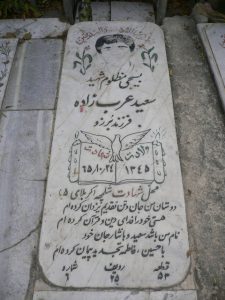 بسیجی مظلوم شهید
سعید عرب زاده
فرزند برزو
ولادت شهادت
۱۳۴۵ ۶۵/۱۰/۲۴
محل شهادت شلمچه (کربلای ۵)
دوستان من جان و تن تقدیم یزدان کرده ام
هستی خود را فدای دین و قرآن کرده ام
نام من باشد سعید و با نثار جان خود
با حسین فاطمه تجدید پیمان کرده ام
قطعه ردیف شماره
۵۳ ۲۵ ۶